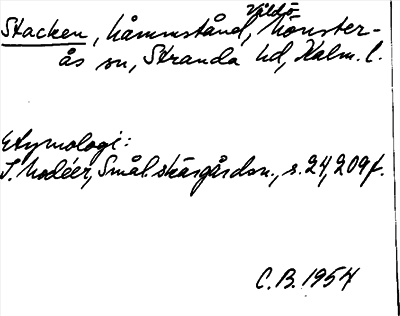 Stacken, håmmstånd, Vållö, Mönster-
ås sn, Stranda hd, Kalm. l.
Etymologi:
I. Modéer, Smål. skärgårdsn., s. 24, 209 f.
C.B. 1957